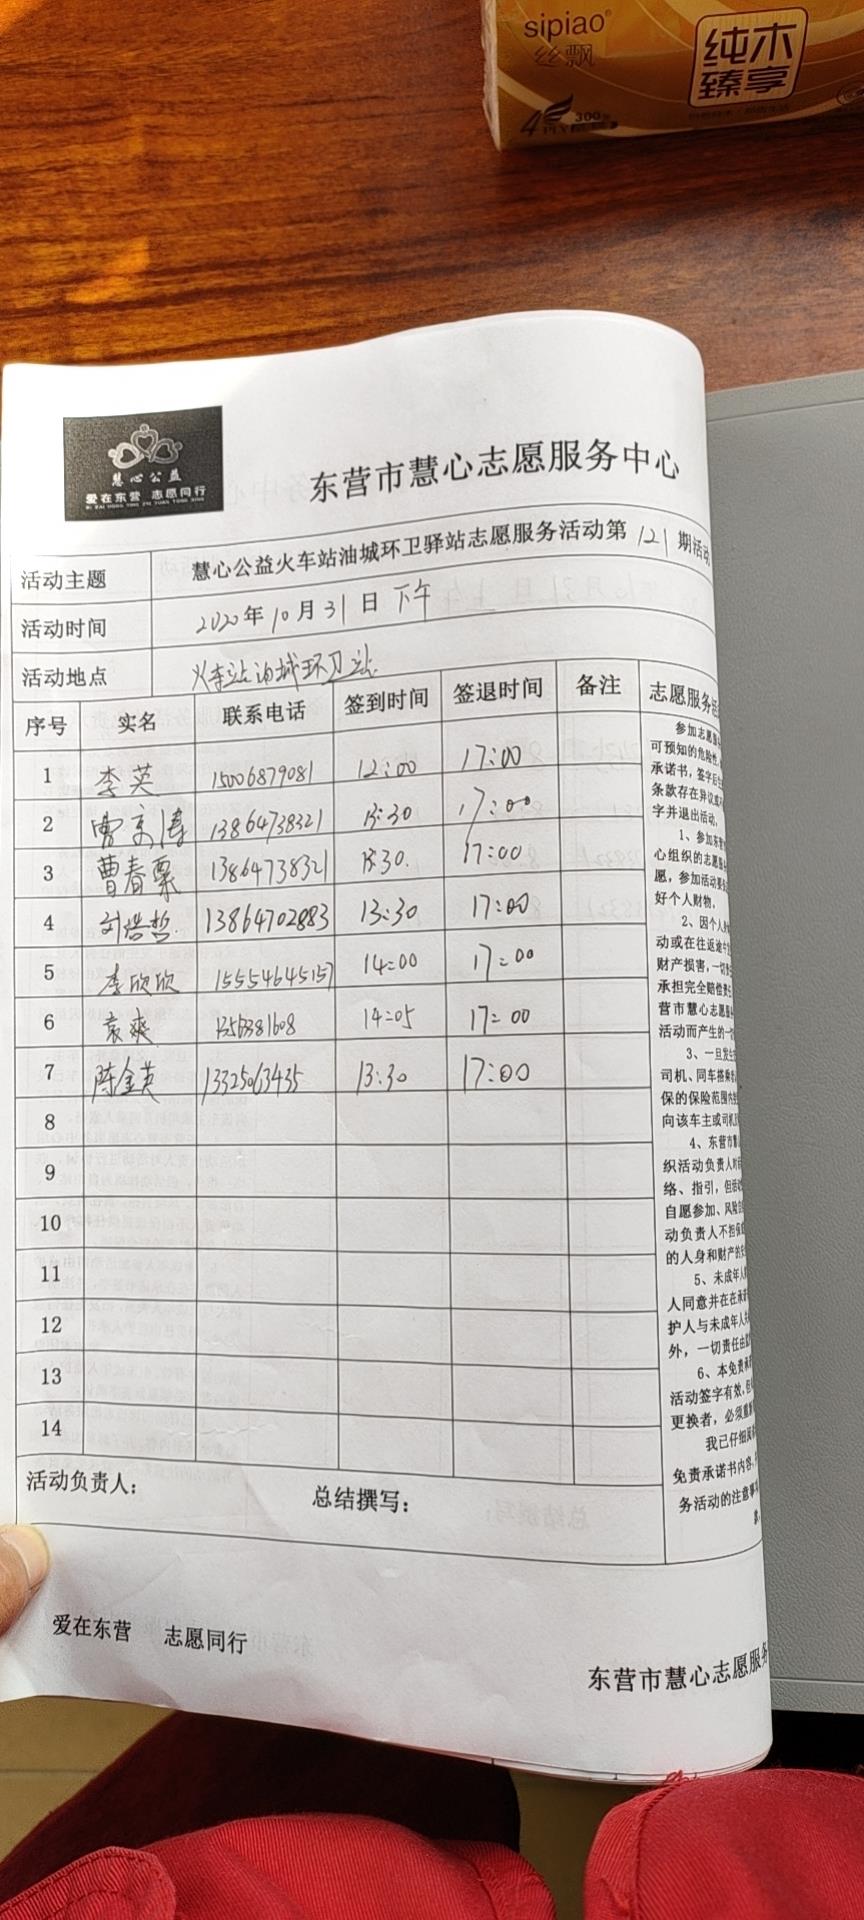 sipiao
丝飘
纯木
臻享
4PLY
300
慧心公益
爱在东营 志愿同行
东营市慧心志愿服务中心
活动主题 慧心公益火车站油城环卫驿站志愿服务活动第121期活动
活动时间 2020年10月31日下午
活动地点 火车站油城环卫站
序号 实名 联系电话 签到时间 签退时间 备注 志愿服务活
1 李英 15006879081 12:00 17:00
2 曹京涛 13864738321 13:30 17:00
3 曹春粟 13864738321 13:30 17:00
4 刘浩哲 13864702883 13:30 17:00
5 李欣欣 15554645157 14:00 17:00
6 袁爽 14:05 17:00
7 陈金英 13325063435 13:30 17:00
8
9
10
11
12
13
14
参加志愿服
可预知的危险性
承诺书，签字后
条款存在异议或
字并退出活动。
1、参加东营
心组织的志愿服
愿，参加活动要
好个人财物。
2、因个人
动或在往返途中
财产损害，一切
承担完全赔偿责
营市慧心志愿服
活动而产生的一
3、一旦发生
司机、同车搭乘
保的保险范围内
向该车主或司机
4、东营市慧
织活动负责人对
络、指引，但活动
自愿参加、风险
动负责人不担保
的人身和财产的
5、未成年人
人同意并在在承
护人与未成年人
外，一切责任由
6、本免责承
活动签字有效，但
更换者，必须重
我已仔细阅
免责承诺书内容，
务活动的注意事
活动负责人： 总结撰写：
爱在东营 志愿同行
东营市慧心志愿服务